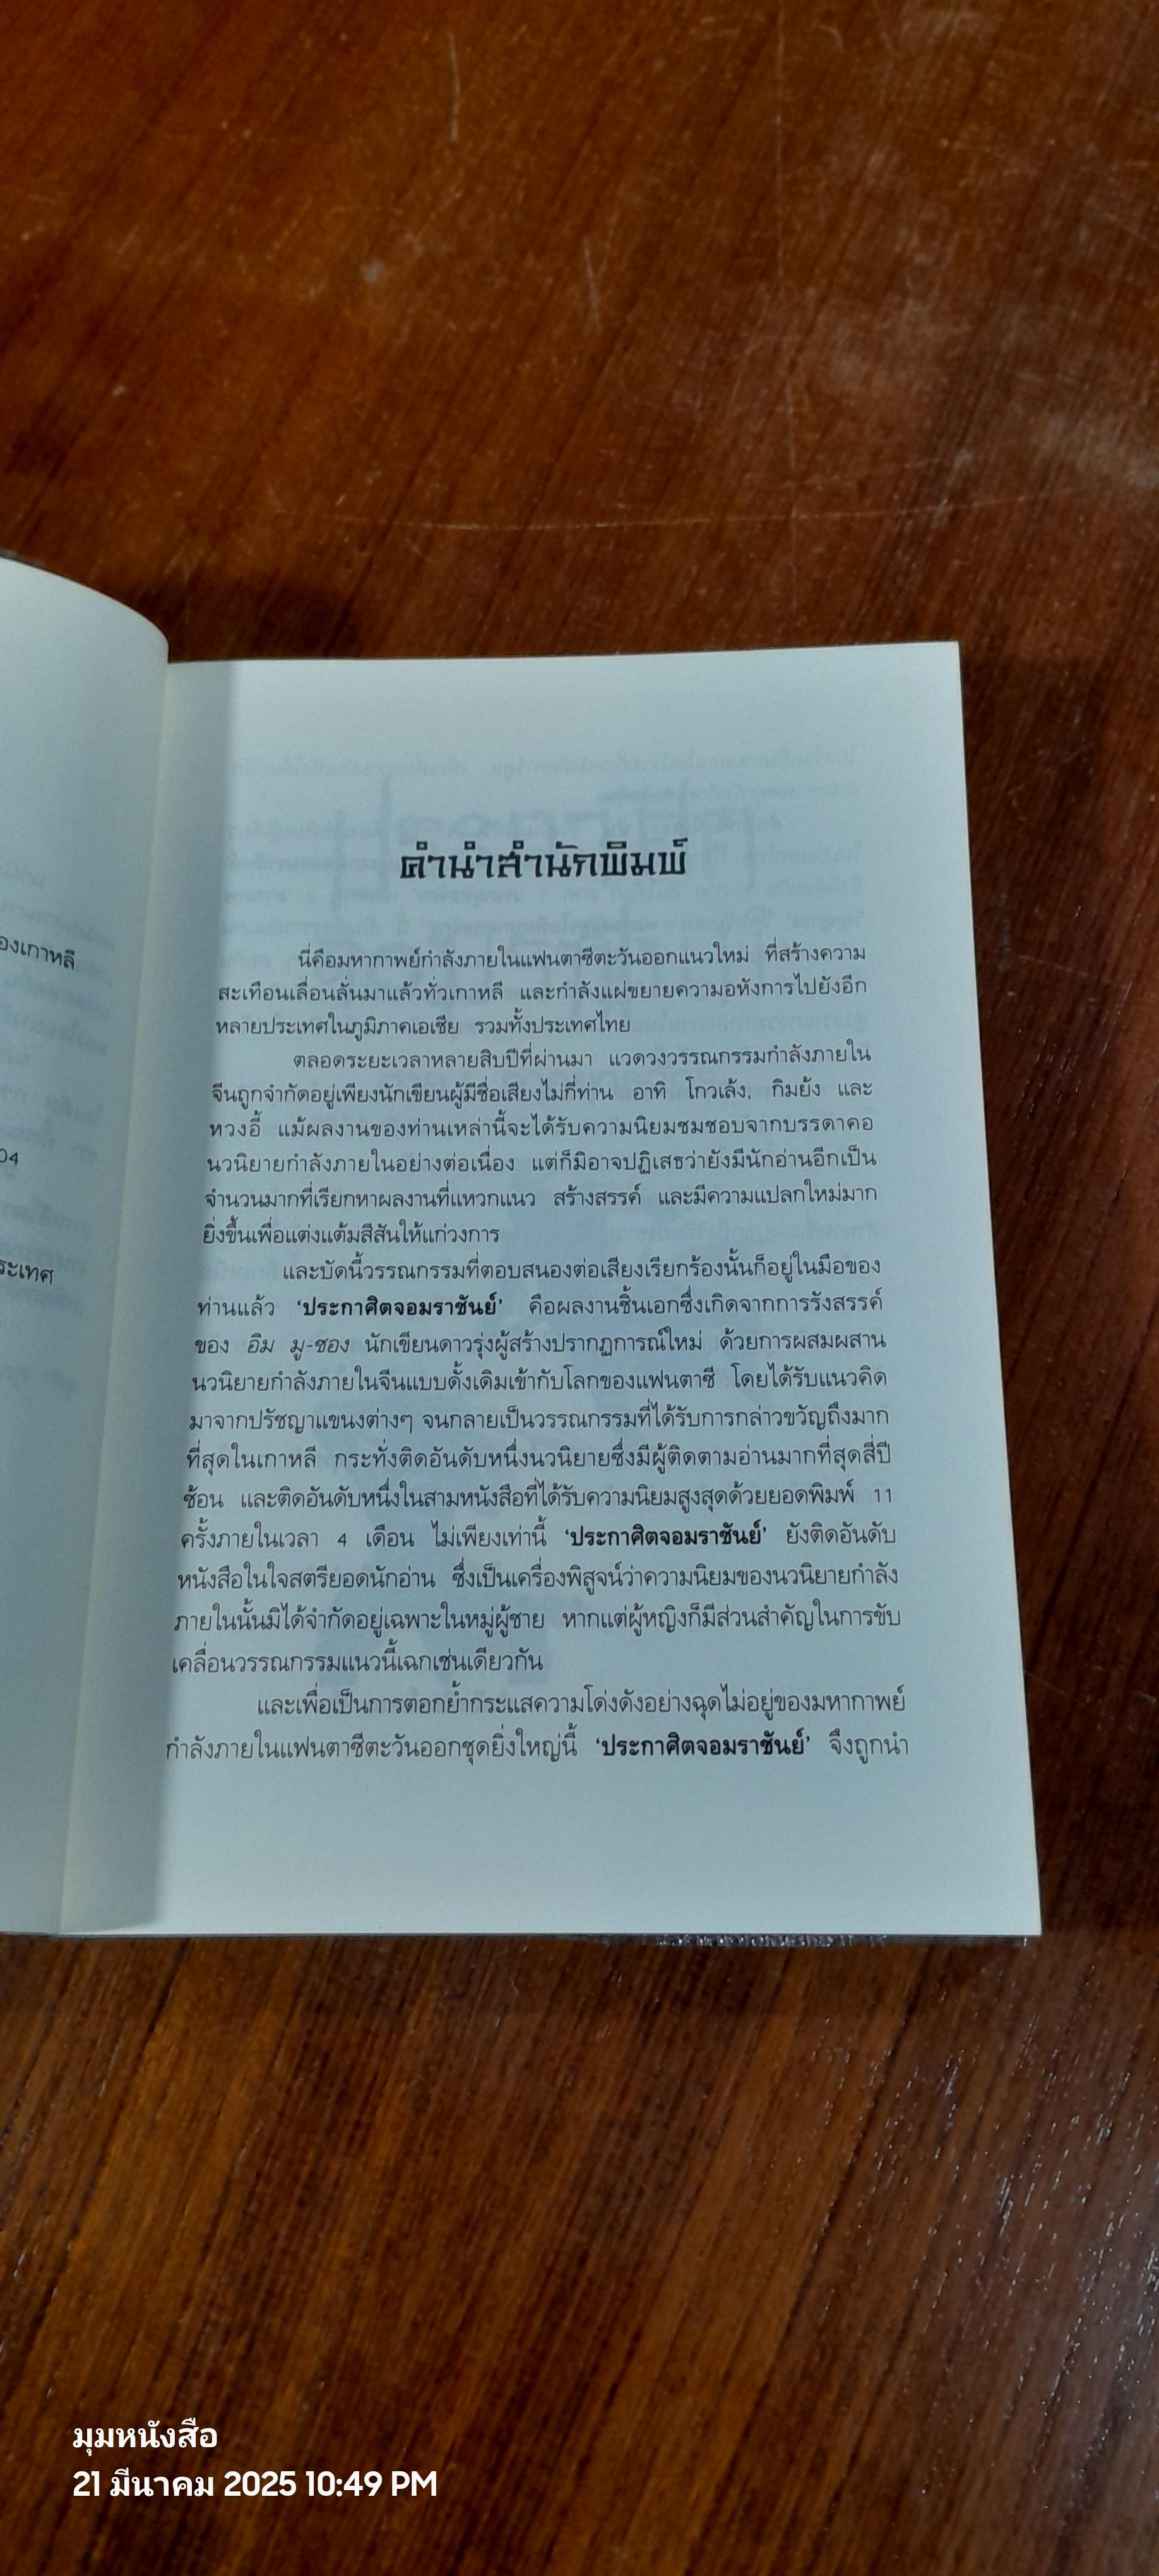 องเกาหลี
04
ระเทศ
คำนำสำนักพิมพ์
นี่คือมหากาพย์กำลังภายในแฟนตาซีตะวันออกแนวใหม่ ที่สร้างความ
สะเทือนเลื่อนลั่นมาแล้วทั่วเกาหลี และกำลังแผ่ขยายความอหังการไปยังอีก
หลายประเทศในภูมิภาคเอเชีย รวมทั้งประเทศไทย
ตลอดระยะเวลาหลายสิบปีที่ผ่านมา แวดวงวรรณกรรมกำลังภายใน
จีนถูกจำกัดอยู่เพียงนักเขียนผู้มีชื่อเสียงไม่กี่ท่าน อาทิ โกวเล้ง, กิมย้ง และ
หวงอี้ แม้ผลงานของท่านเหล่านี้จะได้รับความนิยมชมชอบจากบรรดาคอ
นวนิยายกำลังภายในอย่างต่อเนื่อง แต่ก็มิอาจปฏิเสธว่ายังมีนักอ่านอีกเป็น
จำนวนมากที่เรียกหาผลงานที่แหวกแนว สร้างสรรค์ และมีความแปลกใหม่มาก
ยิ่งขึ้นเพื่อแต่งแต้มสีสันให้แก่วงการ
และบัดนี้วรรณกรรมที่ตอบสนองต่อเสียงเรียกร้องนั้นก็อยู่ในมือของ
ท่านแล้ว ‘ประกาศิตจอมราชันย์’ คือผลงานชิ้นเอกซึ่งเกิดจากการรังสรรค์
ของ อิม มู-ซอง นักเขียนดาวรุ่งผู้สร้างปรากฏการณ์ใหม่ ด้วยการผสมผสาน
นวนิยายกำลังภายในจีนแบบดั้งเดิมเข้ากับโลกของแฟนตาซี โดยได้รับแนวคิด
มาจากปรัชญาแขนงต่างๆ จนกลายเป็นวรรณกรรมที่ได้รับการกล่าวขวัญถึงมาก
ที่สุดในเกาหลี กระทั่งติดอันดับหนึ่งนวนิยายซึ่งมีผู้ติดตามอ่านมากที่สุดสี่ปี
ซ้อน และติดอันดับหนึ่งในสามหนังสือที่ได้รับความนิยมสูงสุดด้วยยอดพิมพ์ 11
ครั้งภายในเวลา 4 เดือน ไม่เพียงเท่านี้ ‘ประกาศิตจอมราชันย์’ ยังติดอันดับ
หนังสือในใจสตรียอดนักอ่าน ซึ่งเป็นเครื่องพิสูจน์ว่าความนิยมของนวนิยายกำลัง
ภายในนั้นมิได้จำกัดอยู่เฉพาะในหมู่ผู้ชาย หากแต่ผู้หญิงก็มีส่วนสำคัญในการขับ
เคลื่อนวรรณกรรมแนวนี้เฉกเช่นเดียวกัน
และเพื่อเป็นการตอกย้ำกระแสความโด่งดังอย่างฉุดไม่อยู่ของมหากาพย์
กำลังภายในแฟนตาซีตะวันออกชุดยิ่งใหญ่นี้ ‘ประกาศิตจอมราชันย์’ จึงถูกนำ
มุมหนังสือ
21 มีนาคม 2025 10:49 PM